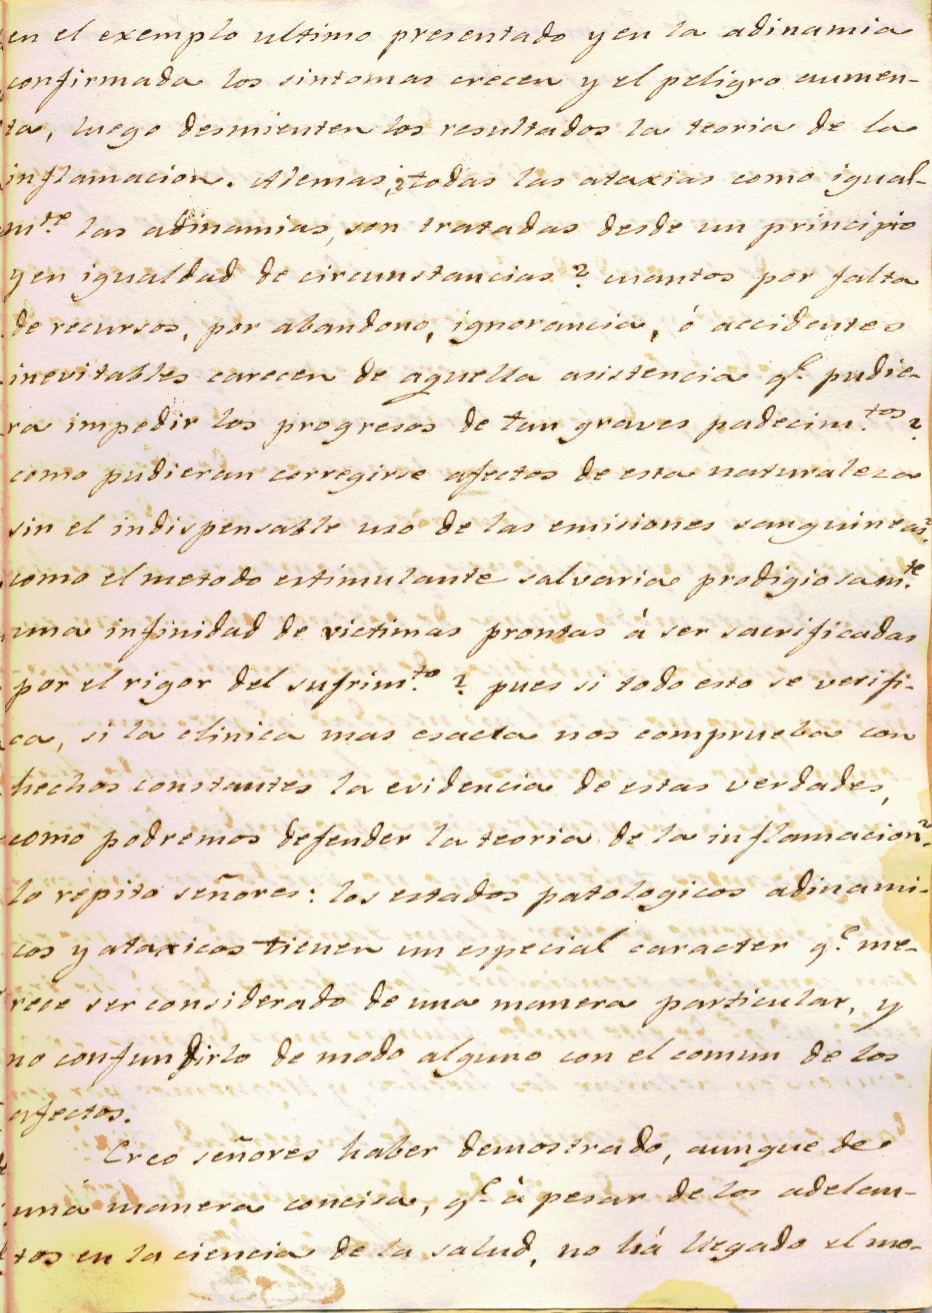 en el exemplo ultimo presentado y en la adinamia
confirmada los sintomas crecen y el peligro aumen-
ta, luego desmienten los resultados la teoria de la
inflamacion. Ademas ¿todas las ataxias como igual-
m.te las adinamias, son tratadas desde un principio
y en igualdad de circunstancias? cuantos por falta
de recursos, por abandono, ignorancia, ó accidentes
inevitables carecen de aquella asistencia q.e pudie-
ra impedir los progresos de tan graves padecim.tos?
como pudieran corregirse afectos de esta naturaleza
sin el indispensable uso de las emisiones sanguineas?
como el metodo estimulante salvaria prodigiosam.te
una infinidad de victimas prontas á ser sacrificadas
por el rigor del sufrim.to? pues si todo esto se verifi-
ca, si la clinica mas esacta nos comprueba con
hechos constantes la evidencia de estas verdades,
como podremos defender la teoria de la inflamacion?
lo repito señores: los estados patologicos adinami-
cos y ataxicos tienen un especial caracter q.e me-
rece ser considerado de una manera particular, y
no confundirlo de modo alguno con el comun de los
afectos.
Creo señores haber demostrado, aunque de
una manera concisa, q.e á pesar de los adelan-
tos en la ciencia de la salud, no há llegado el mo-